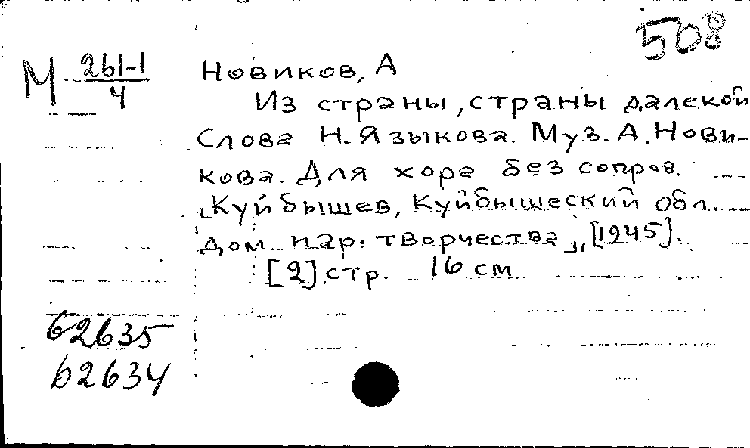 508
М 261-1
4
Новиков, А
Из страны, страны далекой
Слова Н. Языкова. Муз. А. Нови-
кова. Для хора без сопров.
[Куйбышев, Куйбышеский обл.
дом нар. творчества], [1945].
[2] стр. 16 см
62635
62634